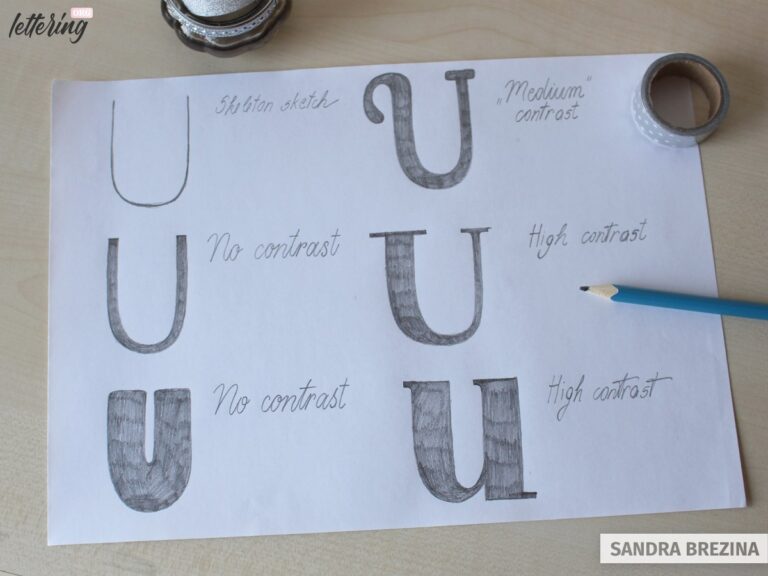 lettering
.ORG
U
Skeleton sketch
U
„Medium"
contrast
U
No contrast
U
High contrast
U
No contrast
u
High contrast
SANDRA BREZINA